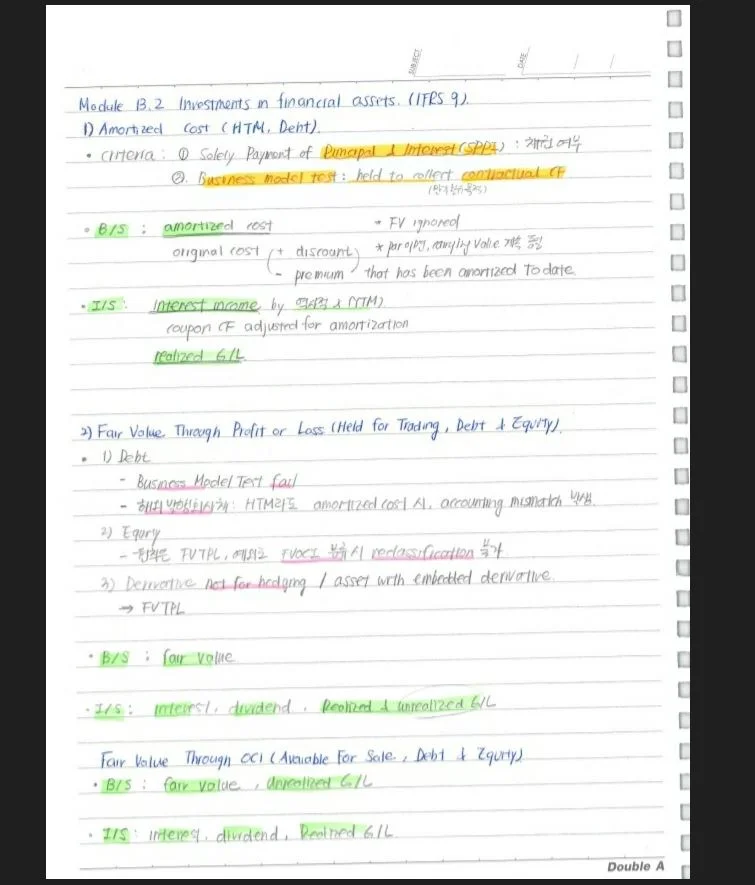 SUBJECT
DATE / /
Module 13.2 Investments in financial assets. (IFRS 9).
1) Amortized Cost (HTM, Debt).
• Criteria : ① Solely Payment of Principal & Interest (SPPI) : 채권 여부
②. Business model test : held to collect contractual CF
• B/S : amortized cost * FV ignored
original cost ( + discount ) * par 아님, carrying value 계속
- premium that has been amortized to date
• I/S : Interest income by 역사적 r (YTM)
coupon CF adjusted for amortization
realized G/L
2) Fair Value Through Profit or Loss (Held for Trading, Debt & Equity).
• 1) Debt
- Business Model Test fail
- 해외 발행회사채 : HTM라도 amortized cost 시, accounting mismatch 발생.
2) Equity
- 원칙은 FVTPL, 예외로 FVOCI 분류 시 reclassification 불가
3) Derivative not for hedging / asset with embedded derivative.
→ FVTPL
• B/S : fair value
• I/S : interest, dividend, Realized & unrealized G/L
Fair Value Through OCI (Available For Sale, Debt & Equity)
• B/S : fair value, Unrealized G/L
• I/S : interest, dividend, Realized G/L
Double A